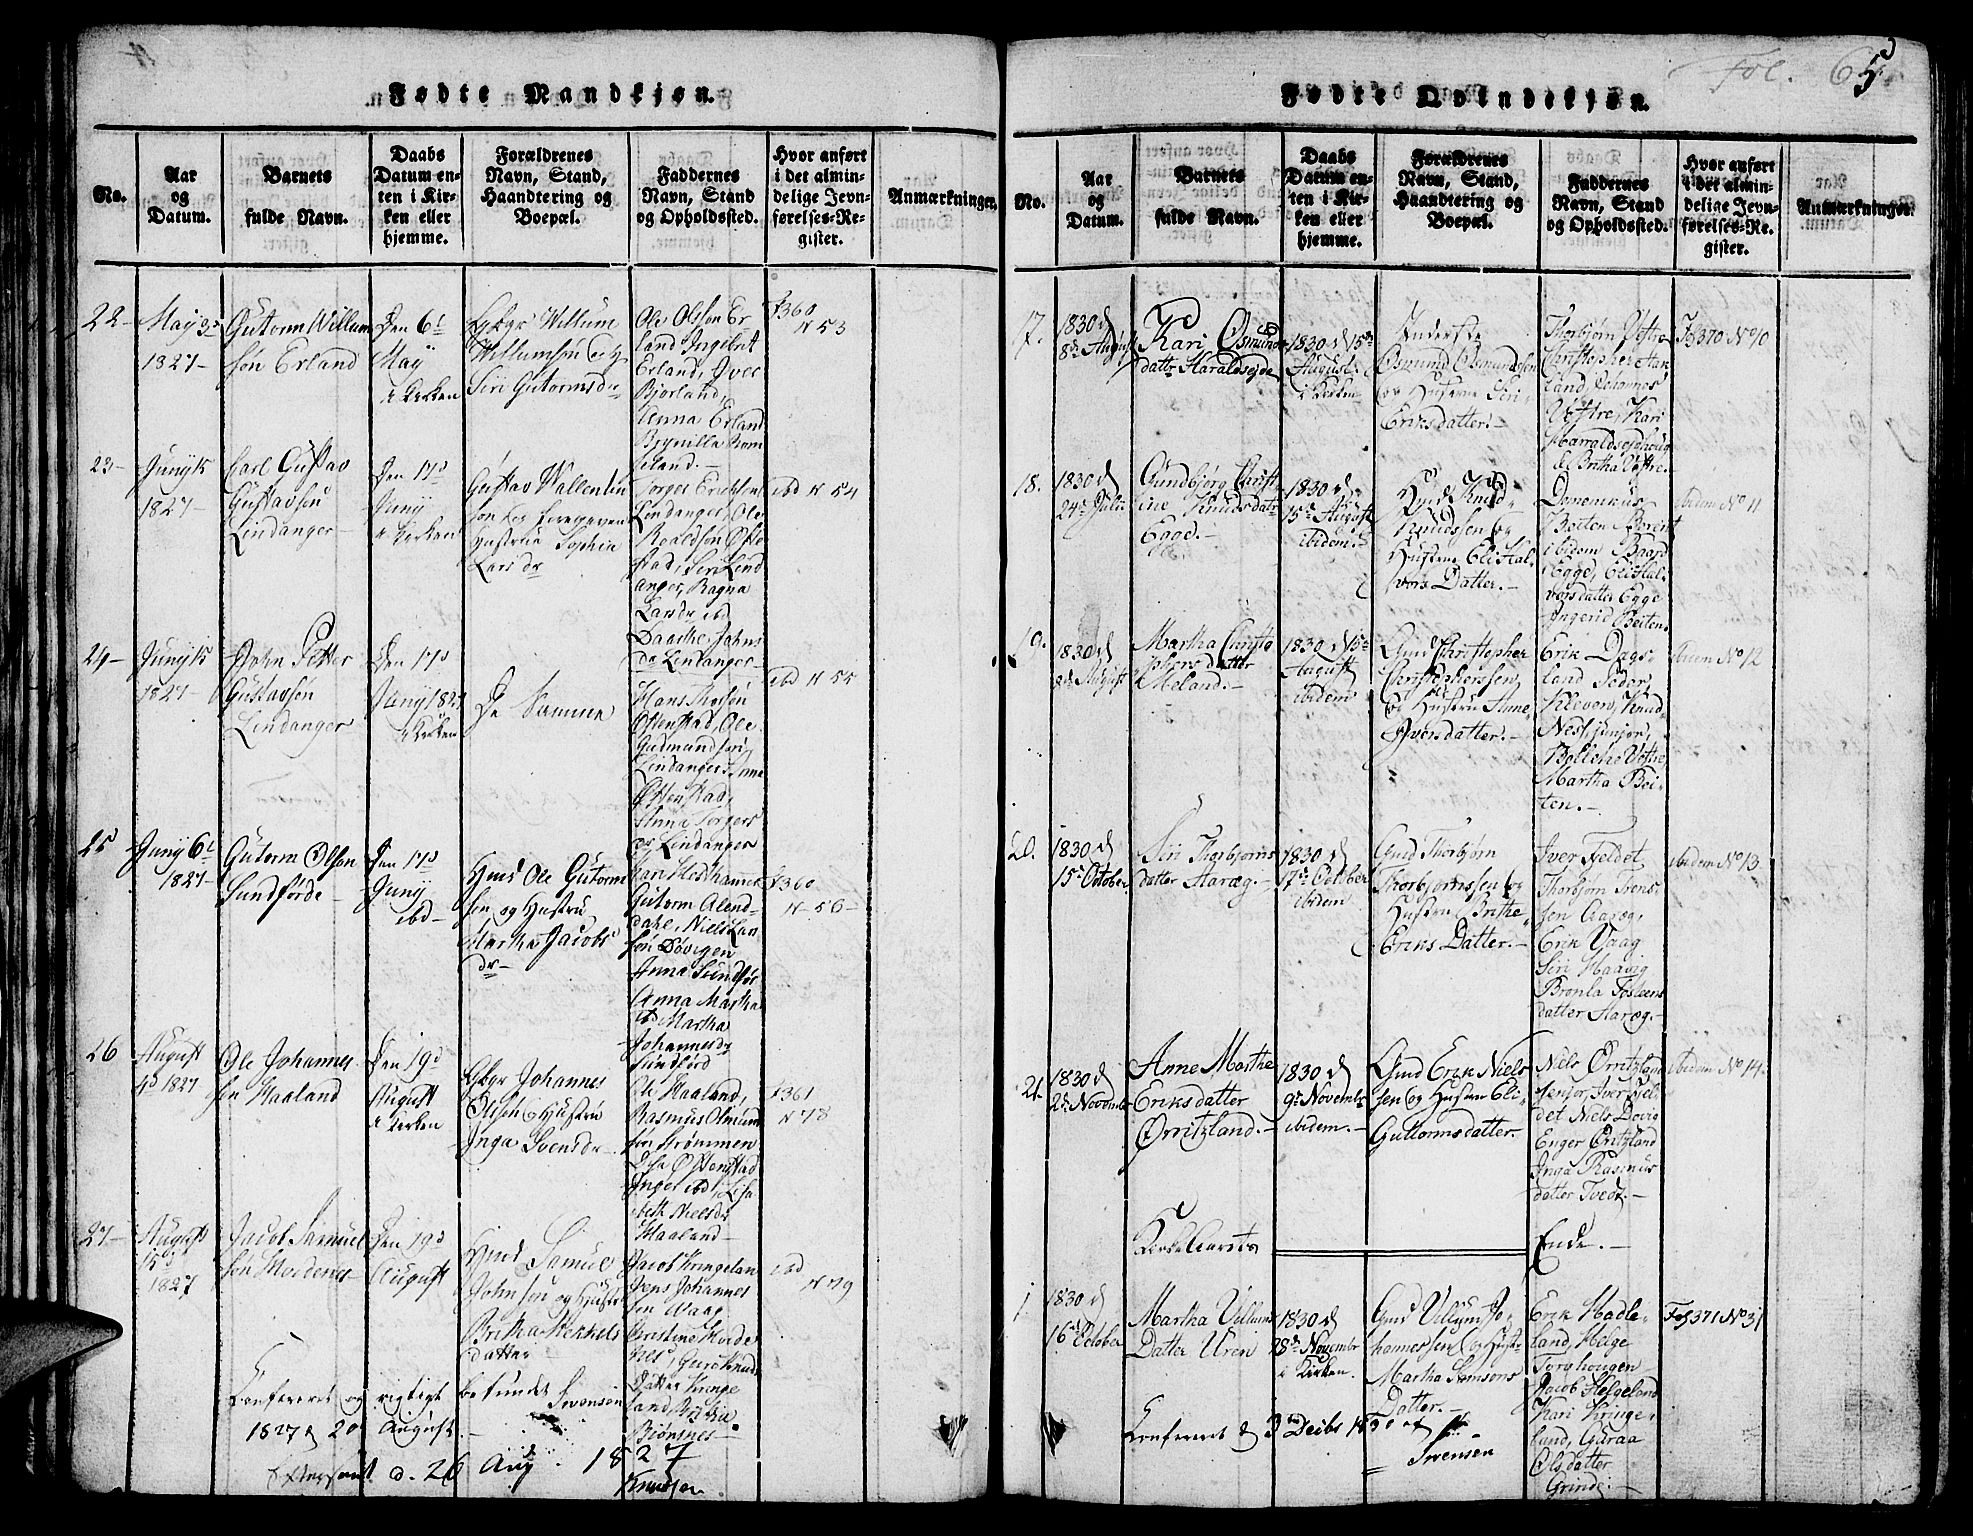 Fol. 65
Fødte Mandkjøn.
No.
Aar
og
Datum.
Barnets
fulde Navn.
Daabs
Datum en-
ten i Kir-
ken eller
hjemme.
Forældrenes
Navn, Stand,
Haandtering og
Boepæl.
Faddernes
Navn, Stand
og Opholdssted.
Hvor anført
i det almin-
delige Jevn-
førelses-Re-
gister.
Anmærkninger.
22
May 3d
1827
Gutorm Willum
søn Erland
Den 6t
May
i Kirken
Gbgr Willum
Willumsøn og
Siri Gutormsdr
Ole Olsøn Er-
land, Ingebret
Erland, Iver
Bjorland,
Anna Erland
f360
N 53
23
Juny 15
1827
Carl Gustav
Gustavsøn
Lindanger
Den 17d
Juny
i Kirken
Gustav Wallentin
Hustrue Sophia
Lars dr
Torger Ericksen
Lindanger, Ole
Roaldsøn Østen
stad, Siri Lind
anger, Ragna
Larsdr ibd
Daarthe Johns
dr Lindanger
ibd N 54
24
Juny 15
1827
John Petter
Gustavsøn
Lindanger
Den 17d
Juny 1827
i Kirken
De Samme
Østenstad, Ole
Gudmundsøn
Lindanger
Østenstad,
Anna Torgers
dr Lindanger
ibd N 55
25
Juny 6t
1827
Gutorm Olsen
Sundførde
Den 17d
Juny
ibd
Hmd Ole Gutorm
sen og Hustru
Martha Jacobs
dr
Gutorm Alend-
dahl, Niels Lar
søn Døvigen
Anna Sundfør
Anna Martha
ibd Martha
Johannesdr
Sundførd
f360
N 56
26
August
4d 1827
Ole Johannes
søn Haaland
Den 19d
August
i Kirken
Gbgr Johannes
Olsen og Hustru
Inga Svensdr
Ole Haaland,
Rasmus Olmund
søn Strømmen
Østenstad
Inger ibd, Lisa
beth Nielsdr
Haaland
f361
N 78
27
August
15d
1827
Jacob Samuel
søn Hordenes
Den 19d
August
Hmd Samuel
Johnsen og Hustr
Britha Mekkels
datter
Jacob Kringelan
Jens Johannes
sen Waag
Christine Horde
nes, Guro Knuds
Datter Kringe
land, Brithe
Bjønsnes
ibd
N 79
Confereret og rigtigt befundet Svensen
1827 d 20 August.
Eftersedt d. 26 Aug 1827
Knudsen
Fødte Qvindekjøn.
No.
Aar
og
Datum.
Barnets
fulde Navn.
Daabs
Datum en-
ten i Kir-
ken eller
hjemme.
Forældrenes
Navn, Stand,
Haandtering og
Boepæl.
Faddernes
Navn, Stand
og Opholdssted.
Hvor anført
i det almin-
delige Jevn-
førelses-Re-
gister.
Anmærkninger.
17.
1830 d
8de August
Kari Osmunds
datter Haraldseide
1830 d 15de
August
i Kirken
Inderste
Osmund Osmundsen
og Hustrue Siri
Eriksdatter.
Thorbjørn Østre
Christopher Aar
land, Johannes
Østre, Kari
Harraldsejdhoug
& Britha Østre.
Fo370 No 10
18.
1830 d
24de Julii
Gundbjørg Christ-
ine Knudsdatr
Egge.
1830 d
15de August
ibidem.
Gmd Knud
Knudssen og
Hustrue Eli Hal
vors Datter.
Beiten, Berent
ibidem Baard
Egge, Eli Hal-
vorsdatter Egge
Ingerid Beiten.
ibidem No 11
19.
1830 d
8de August
Martha Christo
phers datter
Meland.
1830 d 15de
August
ibidem
Gmd Christopher
Christophersen,
og Hustru Anne
Iversdatter.
Erik Dags-
land, Peder
Kleven, Knud
Nes junjor,
Bolle Østre,
Martha Bei-
ten.
ibidem No 12
20.
1830 d
15de October
Siri Thorbjørns
datter Aarøg.
1830 d
17de October
ibidem
Gmd Thorbjørn
Thorbjørnssen og
Hustru Brithe
Eriks Datter.
Iver Feldet
Thorbjørn Trons-
sen Aarøg,
Erik Vaag
Siri Haavig
Bronla Tosteens
datter Aarøg.
ibidem No 13
21.
1830 d
2de Novembr
Anne Marthe
Eriksdatter
Ørritzland.
1830 d
9de Novembr
ibidem.
Gmd Erik Niels
sen og Hustrue Eli
Guttormsdatter.
Niels Ørritzland
senjor, Iver Fjel
det Niels Dovig
Enger Ørritzland
Inga Rasmus
datter Tvedt.
ibidem No 14.
Kirke Aarets
Ende.
1.
1830 d
16de October
Martha Villums
Datter Uren
1830 d
28de Novembr
i Kirken.
Gmd Villum Jo-
hannessen og Hustr
Martha Samsons
Datter.
Erik Hadle
land, Helge
Torghougen
Jacob Helgeland
Kari Kringe-
land, Guraa
Olsdatter
Grinde.
Fo371 No 31
Confereret d 3de Decbr 1830 af
Svensen